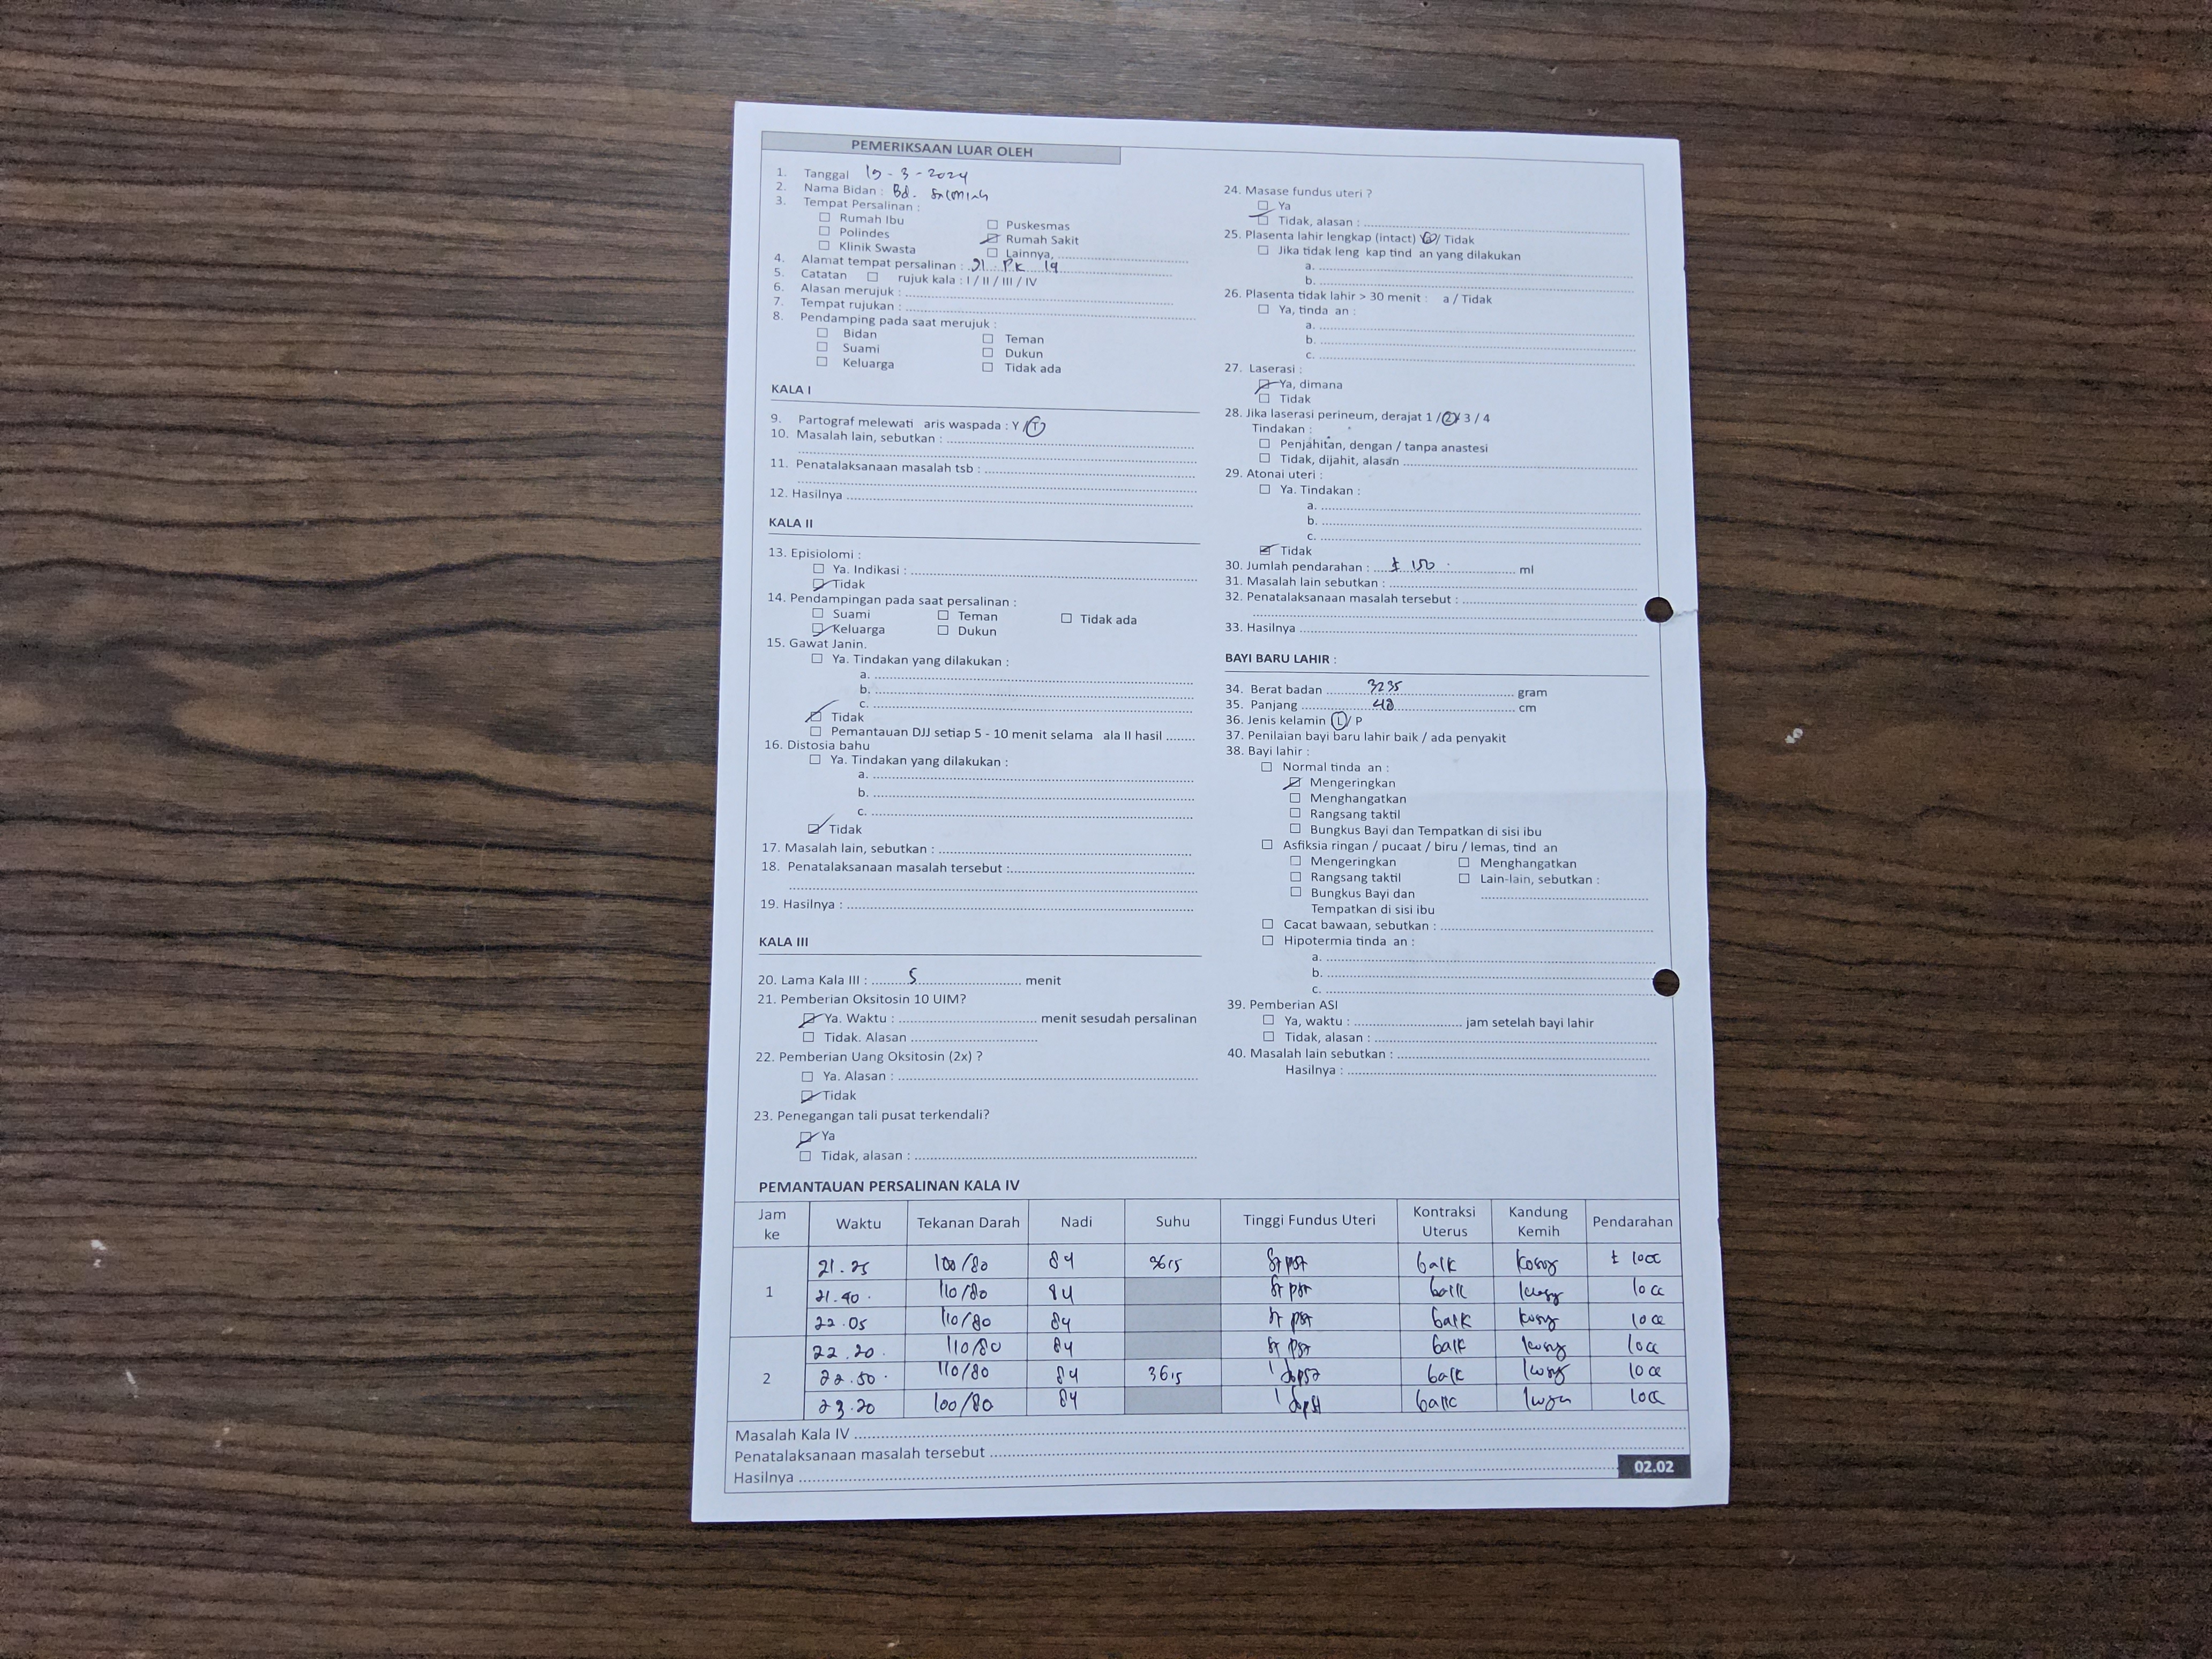 PEMERIKSAAN LUAR OLEH
1. Tanggal -3-2024
2. Nama Bidan : Bd.
3. Tempat Persalinan :
☐ Rumah Ibu ☐ Puskesmas
☐ Polindes ☑ Rumah Sakit
☐ Klinik Swasta ☐ Lainnya, ....................
4. Alamat tempat persalinan : Jl. PK 19
5. Catatan ☐ rujuk kala : I / II / III / IV
6. Alasan merujuk : ....................
7. Tempat rujukan : ....................
8. Pendamping pada saat merujuk :
☐ Bidan ☐ Teman
☐ Suami ☐ Dukun
☐ Keluarga ☐ Tidak ada
KALA I
9. Partograf melewati aris waspada : Y / T
10. Masalah lain, sebutkan : ....................
11. Penatalaksanaan masalah tsb : ....................
12. Hasilnya ....................
KALA II
13. Episiolomi :
☐ Ya. Indikasi : ....................
☑ Tidak
14. Pendampingan pada saat persalinan :
☐ Suami ☐ Teman ☐ Tidak ada
☑ Keluarga ☐ Dukun
15. Gawat Janin.
☐ Ya. Tindakan yang dilakukan :
a. ....................
b. ....................
c. ....................
☑ Tidak
☐ Pemantauan DJJ setiap 5 - 10 menit selama ala II hasil ........
16. Distosia bahu
☐ Ya. Tindakan yang dilakukan :
a. ....................
b. ....................
c. ....................
☑ Tidak
17. Masalah lain, sebutkan : ....................
18. Penatalaksanaan masalah tersebut : ....................
19. Hasilnya : ....................
KALA III
20. Lama Kala III : 5 menit
21. Pemberian Oksitosin 10 UIM?
☑ Ya. Waktu : .................... menit sesudah persalinan
☐ Tidak. Alasan ....................
22. Pemberian Uang Oksitosin (2x) ?
☐ Ya. Alasan : ....................
☑ Tidak
23. Penegangan tali pusat terkendali?
☑ Ya
☐ Tidak, alasan : ....................
24. Masase fundus uteri ?
☐ Ya
☐ Tidak, alasan : ....................
25. Plasenta lahir lengkap (intact) / Tidak
☐ Jika tidak leng kap tind an yang dilakukan
a. ....................
b. ....................
26. Plasenta tidak lahir > 30 menit : a / Tidak
☐ Ya, tinda an :
a. ....................
b. ....................
c. ....................
27. Laserasi :
☑ Ya, dimana
☐ Tidak
28. Jika laserasi perineum, derajat 1 / 2 / 3 / 4
Tindakan :
☐ Penjahitan, dengan / tanpa anastesi
☐ Tidak, dijahit, alasan ....................
29. Atonai uteri :
☐ Ya. Tindakan :
a. ....................
b. ....................
c. ....................
☑ Tidak
30. Jumlah pendarahan : ± 150 ml
31. Masalah lain sebutkan : ....................
32. Penatalaksanaan masalah tersebut : ....................
33. Hasilnya ....................
BAYI BARU LAHIR :
34. Berat badan 3235 gram
35. Panjang 48 cm
36. Jenis kelamin L / P
37. Penilaian bayi baru lahir baik / ada penyakit
38. Bayi lahir :
☐ Normal tinda an :
☑ Mengeringkan
☐ Menghangatkan
☐ Rangsang taktil
☐ Bungkus Bayi dan Tempatkan di sisi ibu
☐ Asfiksia ringan / pucaat / biru / lemas, tind an
☐ Mengeringkan ☐ Menghangatkan
☐ Rangsang taktil ☐ Lain-lain, sebutkan :
☐ Bungkus Bayi dan ....................
Tempatkan di sisi ibu
☐ Cacat bawaan, sebutkan : ....................
☐ Hipotermia tinda an :
a. ....................
b. ....................
c. ....................
39. Pemberian ASI
☐ Ya, waktu : .................... jam setelah bayi lahir
☐ Tidak, alasan : ....................
40. Masalah lain sebutkan : ....................
Hasilnya : ....................
PEMANTAUAN PERSALINAN KALA IV
Jam ke Waktu Tekanan Darah Nadi Suhu Tinggi Fundus Uteri Kontraksi Uterus Kandung Kemih Pendarahan
1 21.25 100/80 84 36,5 St pst baik kosong ± 10cc
21.40 110/80 84 St pst baik kosong 10cc
22.05 110/80 84 St pst baik kosong 10cc
22.20 110/80 84 St pst baik kosong 10cc
2 22.50 110/80 84 36,5 1 jbpst baik kosong 10cc
23.20 100/80 84 1 jbpst baik kosong 10cc
Masalah Kala IV ....................
Penatalaksanaan masalah tersebut ....................
Hasilnya ....................
02.02